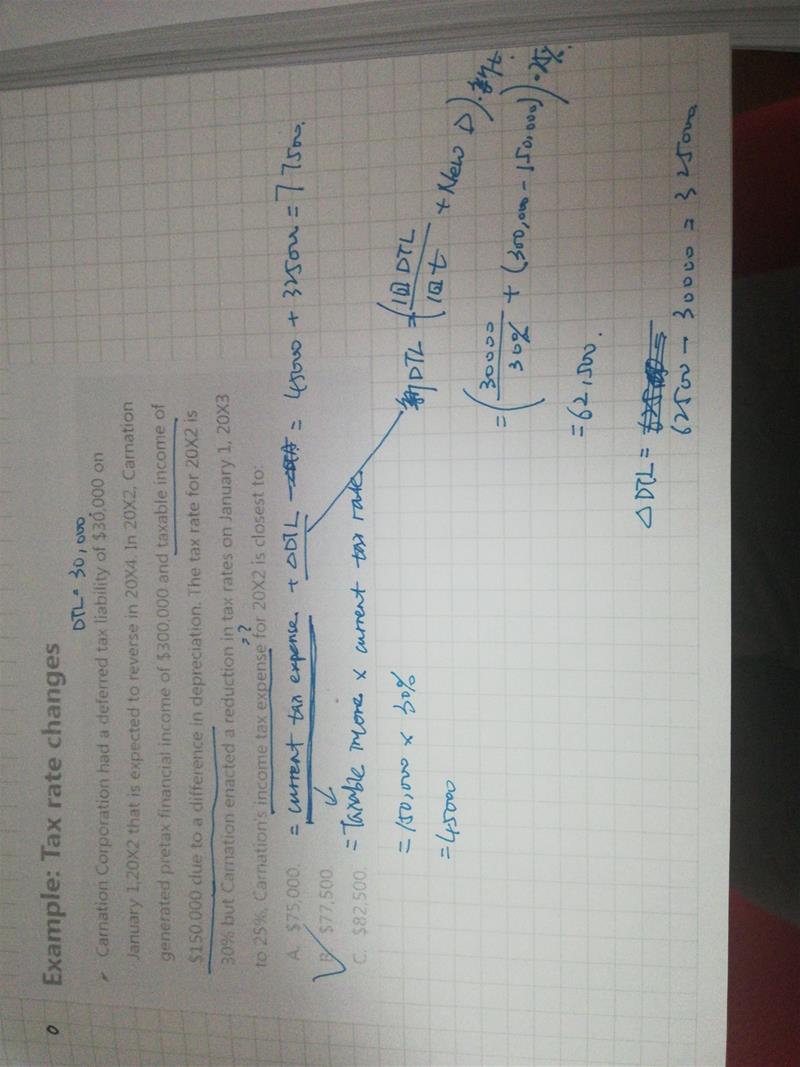 Example: Tax rate changes
DTL = 30,000
Carnation Corporation had a deferred tax liability of $30,000 on
January 1,20X2 that is expected to reverse in 20X4. In 20X2, Carnation
generated pretax financial income of $300,000 and taxable income of
$150.000 due to a difference in depreciation. The tax rate for 20X2 is
30% but Carnation enacted a reduction in tax rates on January 1, 20X3
to 25%, Carnation's income tax expense for 20X2 is closest to:
??
A. $75,000.
B. $77,500.
C. $82,500.
= current tax expense + ΔDTL = 45000 + 32500 = 77500.
= Taxable income × current tax rate
= 150,000 × 30%
= 45000
新DTL = (旧DTL / 旧t + New D)·新t.
= (30000 / 30% + (300,000 - 150,000))·25%.
= 62,500.
Δ DTL =
62500 - 30000 = 32500